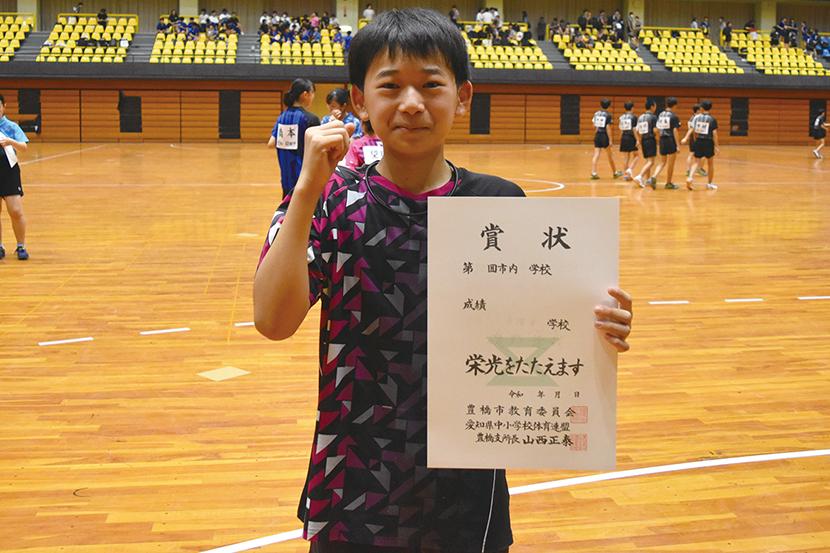 賞 状
第 回市内 学校
成績
学校
栄光をたたえます
令和 年 月 日
豊橋市教育委員会
愛知県中小学校体育連盟
豊橋支所長 山西正泰
本